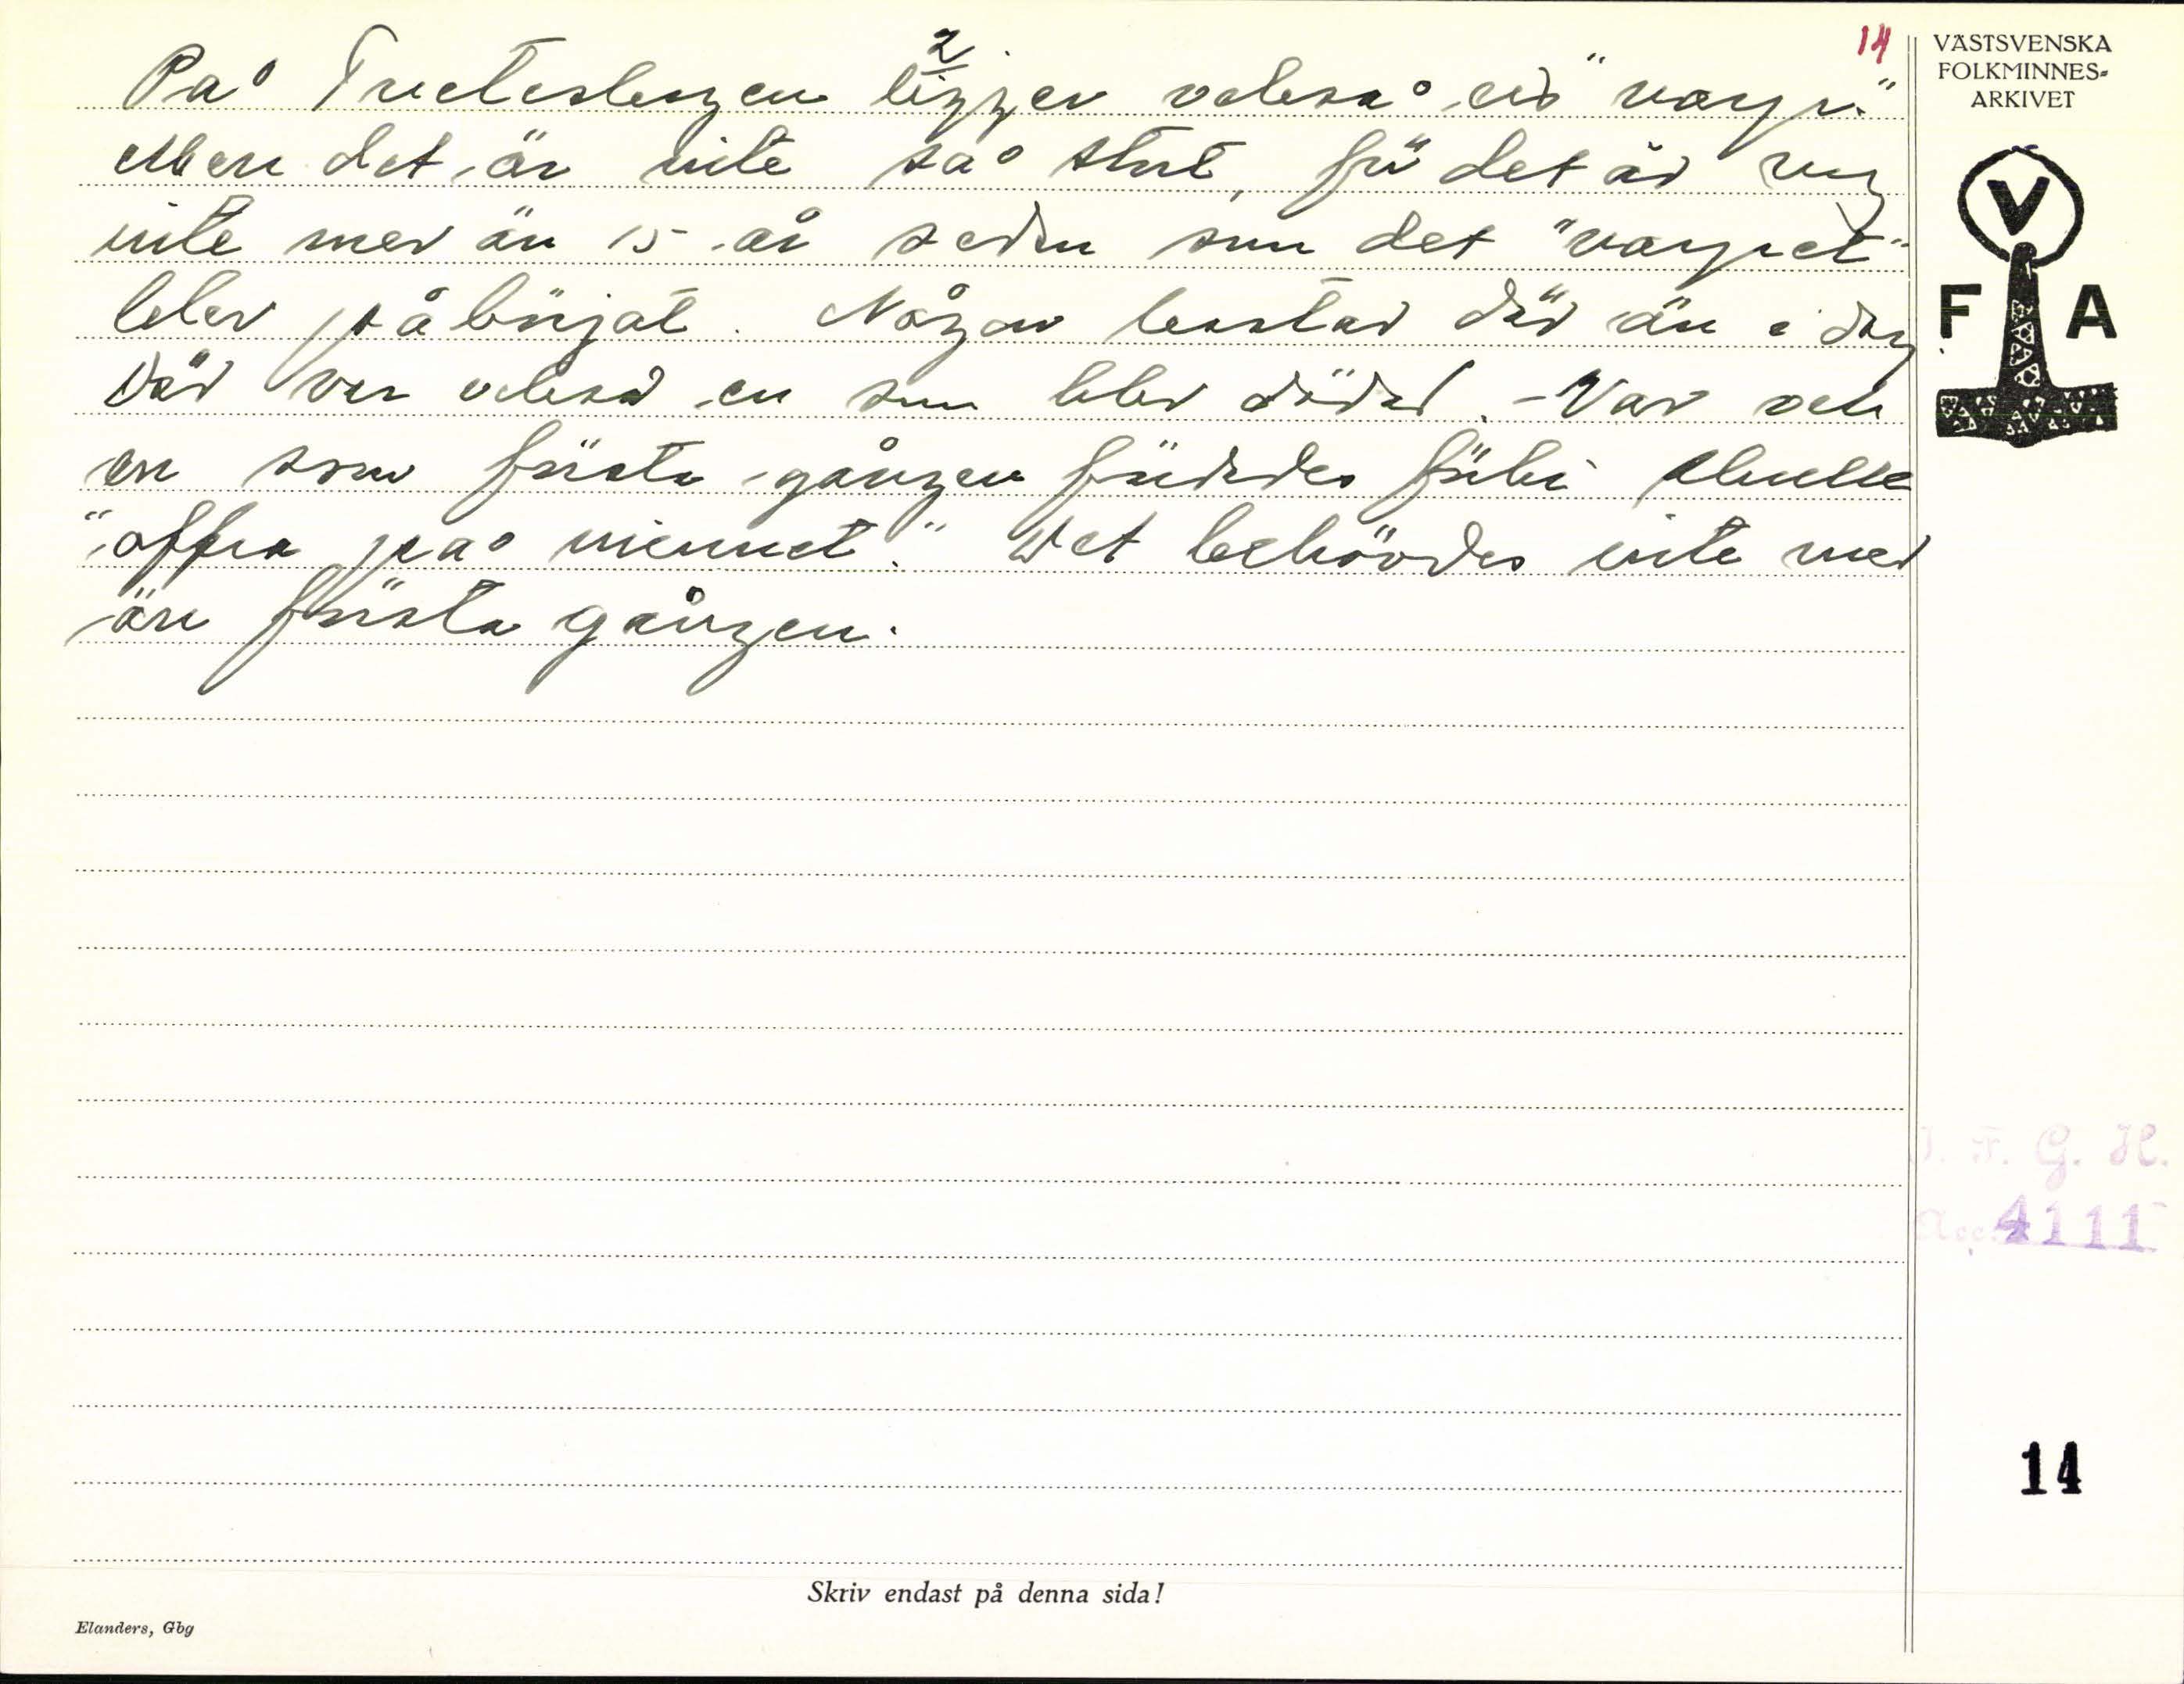 2
14
På ligger också ett "varp."
Men det är inte så stort, för det är nog
inte mer än 15 år sedan som det "varpet"
blev påbörjat. Någon kastar där än i dag
Där var också en som blev dödad. - Var och
en som första gången färdades förbi skulle
"offra på minnet." Det behövdes inte mer
än första gången.
VÄSTSVENSKA
FOLKMINNES-
ARKIVET
V
F A
I. F. G. H.
Acc. 4111
14
Skriv endast på denna sida!
Elanders, Gbg